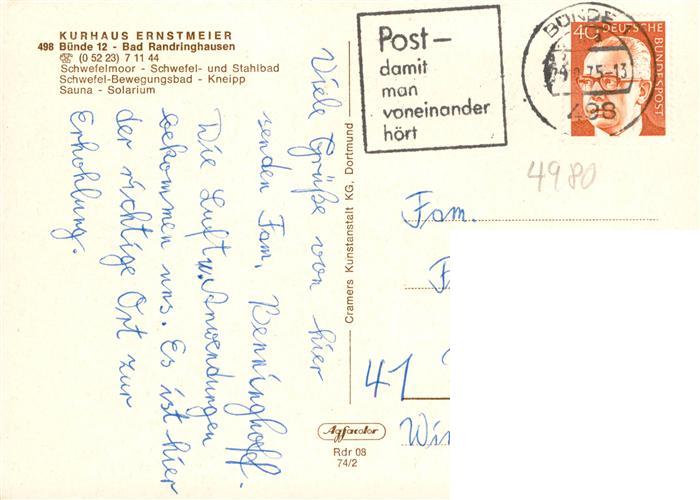 KURHAUS ERNSTMEIER
498 Bünde 12 - Bad Randringhausen
☎ (0 52 23) 7 11 44
Schwefelmoor - Schwefel- und Stahlbad
Schwefel-Bewegungsbad - Kneipp
Sauna - Solarium
Viele Grüße von hier
senden Fam. Benninghoff.
Die Luft u. Anwendungen
bekommen uns. Es ist hier
der richtige Ort zur
Erhohlung.
Cramers Kunstanstalt KG, Dortmund
Agfacolor
Rdr 08
74/2
Post –
damit
man
voneinander
hört
BÜNDE
75-13
498
40
DEUTSCHE
BUNDESPOST
4980
Fam.
F
41
Win